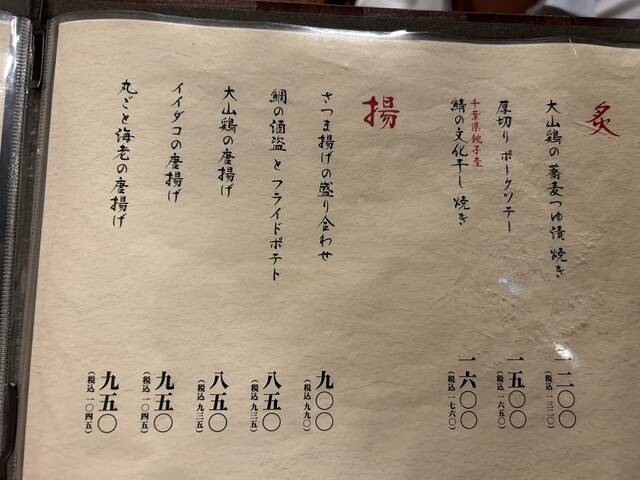 炙
大山鶏の蕎麦つゆ漬焼き
一二〇〇
(税込 一三二〇)
厚切り ポークソテー
一五〇〇
(税込 一六五〇)
千葉県銚子産
鯖の文化干し焼き
一六〇〇
(税込 一七六〇)
揚
さつま揚げの盛り合わせ
九〇〇
(税込 九九〇)
鯛の酒盗 と フライドポテト
八五〇
(税込 九三五)
大山鶏の唐揚げ
八五〇
(税込 九三五)
イイダコの唐揚げ
九五〇
(税込 一〇四五)
丸ごと海老の唐揚げ
九五〇
(税込 一〇四五)